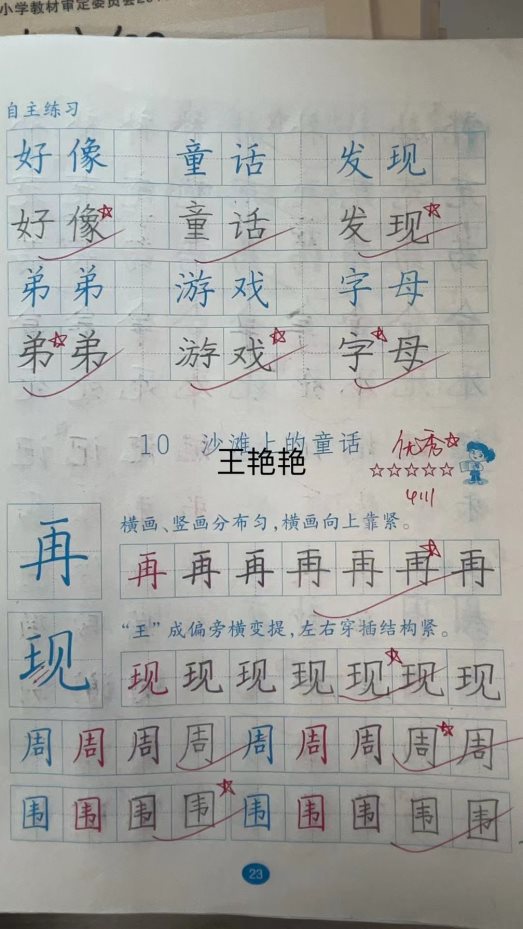 小学教材审定委员会20
自主练习
好像 童话 发现
好像 童话 发现
弟弟 游戏 字母
弟弟 游戏 字母
10 沙滩上的童话
优秀
王艳艳
☆☆☆☆☆
横画、竖画分布匀,横画向上靠紧。
再
再再再再再再再
“王”成偏旁横变提,左右穿插结构紧。
现
现现现现现现现
周周周周周周周周周
围围围围围围围围围
23